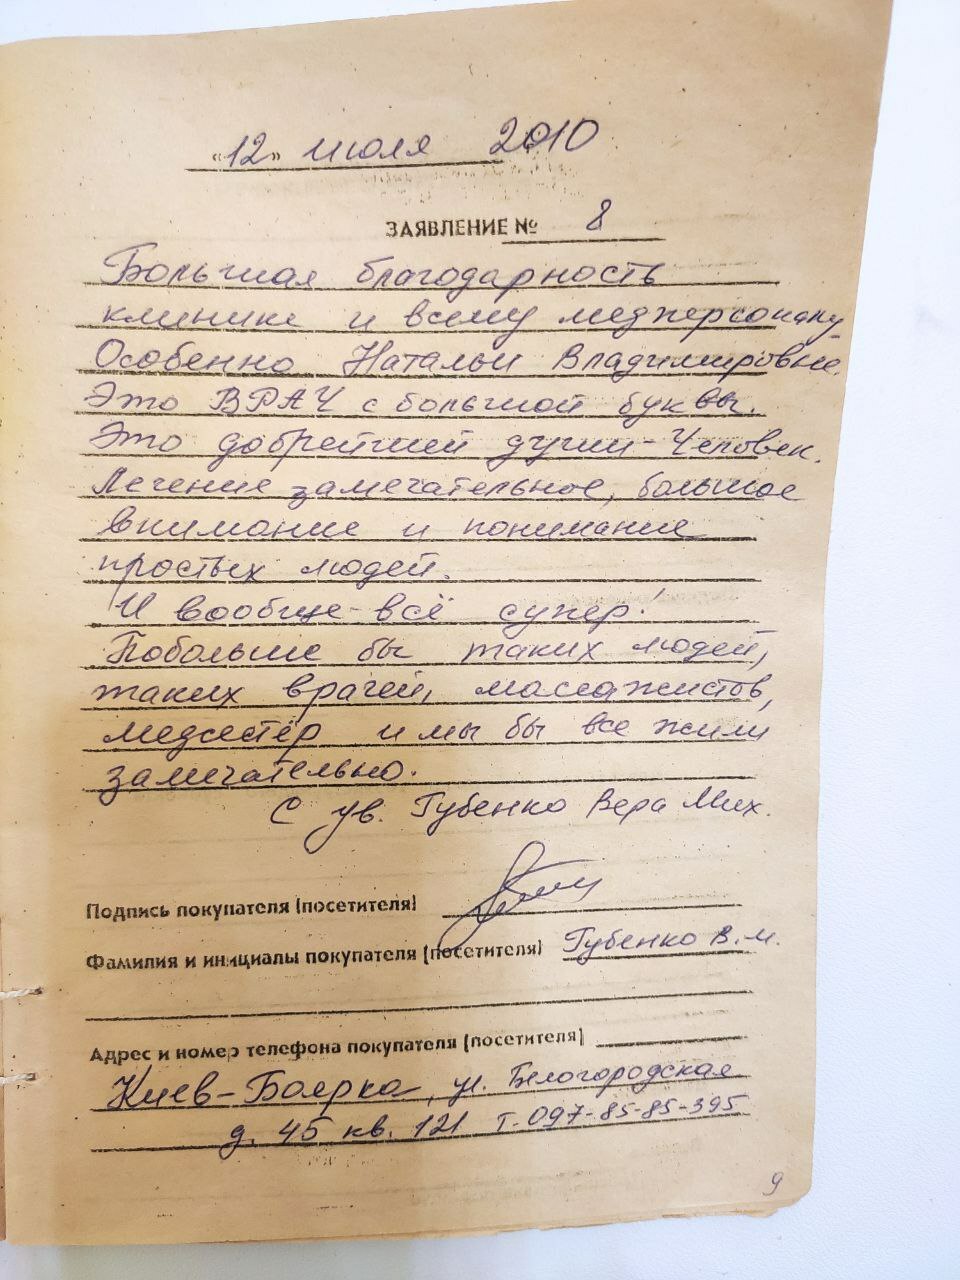 «12» июля 2010
ЗАЯВЛЕНИЕ № 8
Большая благодарность
клинике и всему медперсоналу
Особенно Натальи Владимировне.
Это ВРАЧ с большой буквы.
Это добрейший души - Человек.
Лечение замечательное, большое
внимание и понимание
простых людей.
И вообще - всё супер!
Побольше бы таких людей,
таких врачей, массажистов,
медсестёр и мы бы все жили
замечательно.
С ув. Губенко Вера Мих.
Подпись покупателя (посетителя)
Фамилия и инициалы покупателя (посетителя) Губенко В.М.
Адрес и номер телефона покупателя (посетителя)
Киев-Боярка, ул. Белогородская
д. 45 кв. 121 т. 097-85-85-395
9